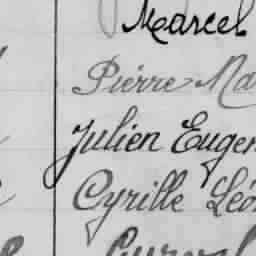 Marcel
Pierre Ma
Julien Eugen
Cyrille Léo